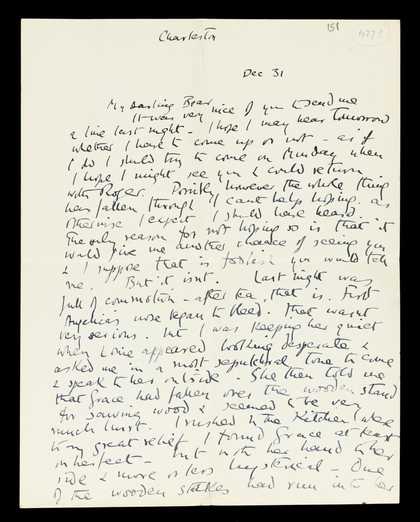 151
Charleston
Dec 31
My darling Bear
It was very nice of you to send me
a line last night - I hope I may hear tomorrow
whether I have to come up or not - as if
I do I should try to come on Monday when
I hope I might see you & could return
with Roger. Possibly however the whole thing
has fallen through. I can't help hoping, as
otherwise I expect I should have heard.
The only reason for not hoping so is that it
would give me another chance of seeing you
& I suppose that is foolish you would tell
me. But it isnt. Last night was
full of commotion - after tea, that is. First
Angelicas nose began to bleed. That wasnt
very serious. But I was keeping her quiet
when Louie appeared looking desperate &
asked me in a most sepulchral tone to come
& speak to her outside. She then told me
that Grace had fallen over the wooden stand
for sawing wood & seemed to be very
much hurt. I rushed to the kitchen where
to my great relief I found Grace at least
on her feet - but with her hand to her
side & more or less hysterical - One
of the wooden stakes had run into her